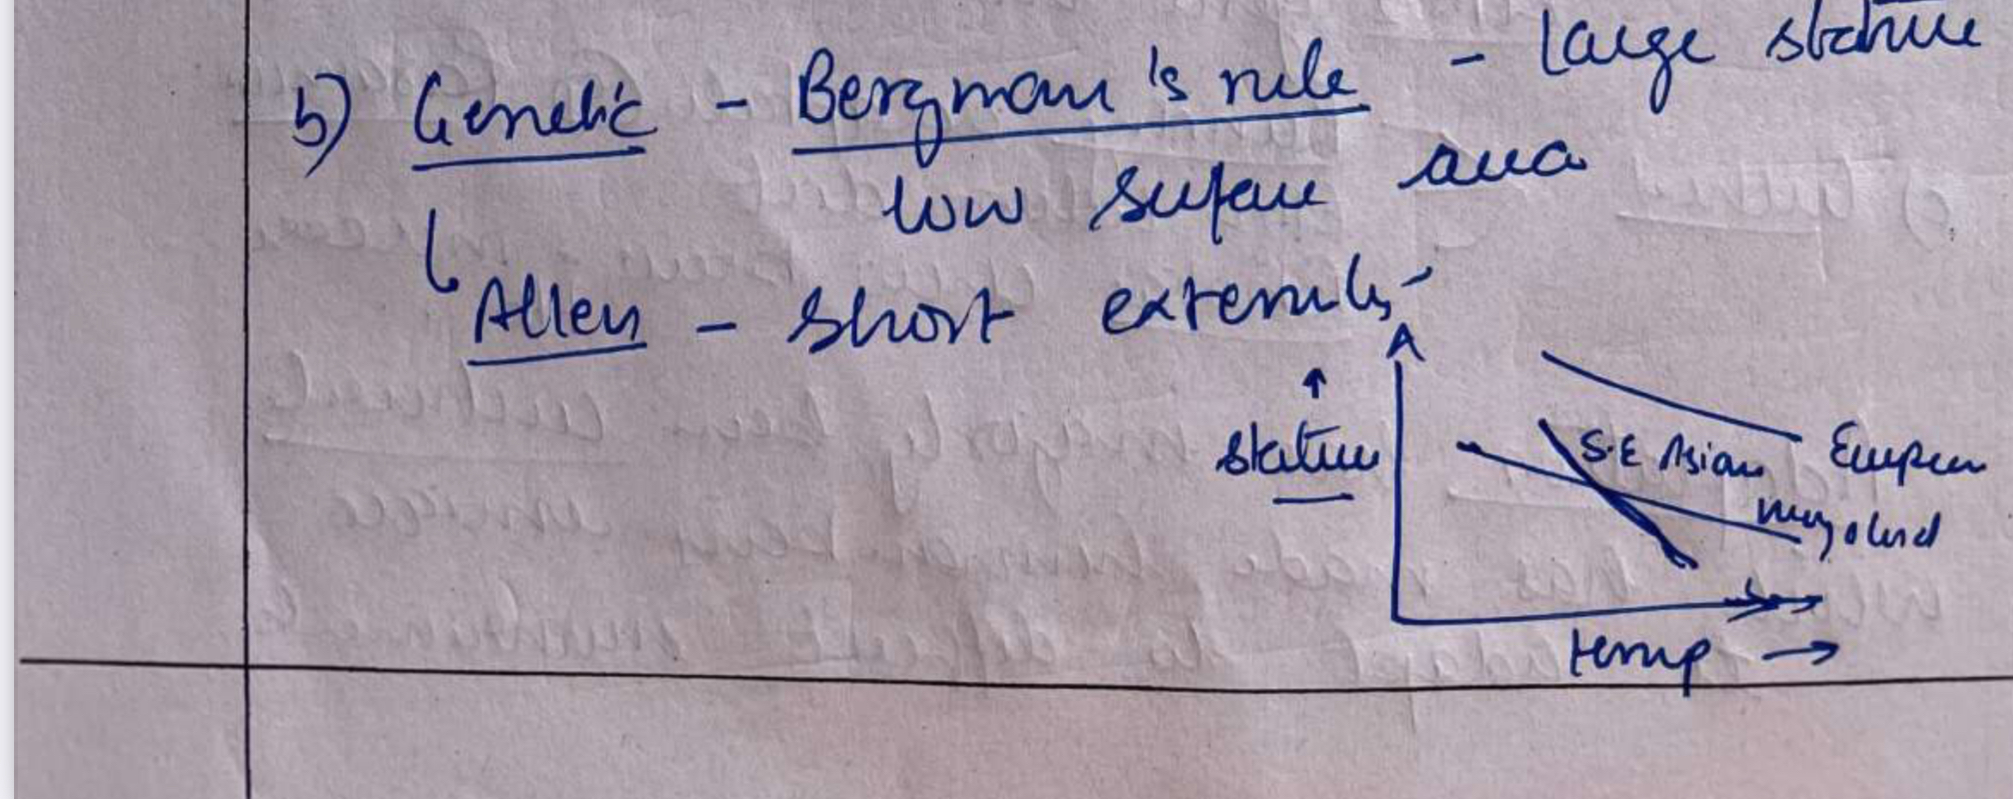 b) Genetic - Bergman's rule - large stature
low surface area
↳ Allen - short
↑
stature
S.E Asian
European
mongoloid
temp →